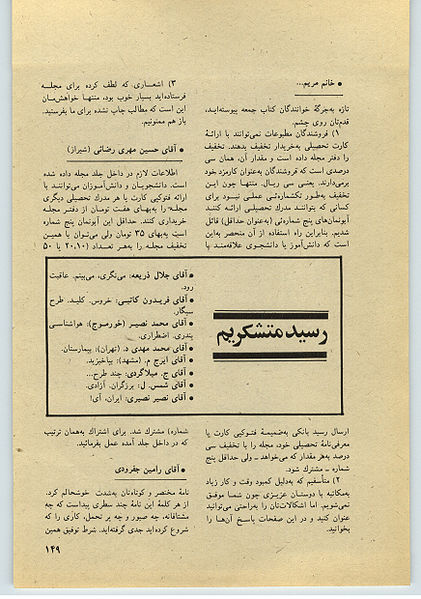 ● خانم مریم...
تازه به‌جرگهٔ خوانندگان کتاب جمعه پیوسته‌اید،
قدم‌تان روی چشم.
۱) فروشندگان مطبوعات نمی‌توانند با ارائهٔ
کارت تحصیلی به‌خریدار تخفیف بدهند. تخفیف
را دفتر مجله داده است و مقدار آن، همان سی
درصدی است که فروشندگان به‌عنوان کارمزد خود
برمی‌دارند. یعنی سی ریال. منتها چون این
تخفیف به‌طور تکشماره‌ئی عملی نبود برای
کسانی که بتوانند مدرک تحصیلی ارائه کنند
آبونمان‌های پنج شماره‌ئی (به‌عنوان حداقل) قائل
شدیم. بنابراین راه استفاده از آن منحصر به‌این
است که دانش‌آموز یا دانشجوی علاقه‌مند با
ارسال رسید بانکی به‌ضمیمهٔ فتوکپی کارت یا
معرفی‌نامهٔ تحصیلی خود، مجله را با تخفیف سی
درصد به‌هر مقدار که می‌خواهد ـ ولی حداقل پنج
شماره ـ مشترک شود.
۲) متأسفیم که به‌دلیل کمبود وقت و کار زیاد
به‌مکاتبه با دوستان عزیزی چون شما موفق
نمی‌شویم. اما اشکالات‌تان را به‌راحتی می‌توانید
عنوان کنید و در این صفحات پاسخ آن‌ها را
بخوانید.
۳) اشعاری که لطف کرده برای مجله
فرستاده‌اید بسیار خوب بود، منتها خواهش‌مان
این است که مطالب چاپ نشده برای ما بفرستید.
باز هم ممنونیم.
● آقای حسین مهری رضائی (شیراز)
اطلاعات لازم در داخل جلد مجله داده شده
است. دانشجویان و دانش‌آموزان می‌توانند با
ارائه فتوکپی کارت یا هر مدرک تحصیلی دیگری
مجله را به‌بهای هفت تومان از دفتر مجله
خریداری کنند. حداقل این آبونمان پنج شماره
است به‌بهای ۳۵ تومان ولی می‌توان با همین
تخفیف مجله را به‌هر تعداد (۲۰،۱۰ یا ۵۰
شماره) مشترک شد. برای اشتراک به‌همان ترتیب
که در داخل جلد آمده عمل بفرمائید.
● آقای رامین جفرودی
نامهٔ مختصر و کوتاه‌تان به‌شدت خوشحالم کرد.
از هر کلمهٔ این نامهٔ چند سطری پیداست که چه
مشتاقانه، چه صبور و چه پر تحمل، کاری را که
شروع کرده‌اید جدی گرفته‌اید. شرط توفیق همین
رسید متشکریم
● آقای جلال ذریعه: می‌نگری، می‌بینم. عاقبت
رود.
● آقای فریدون کاتبی: خروس. کلید. طرح
سیگار.
● آقای محمد نصیر (خورموج): هواشناسی
بندری. اضطراری.
● آقای محمد مهدی د. (تهران): بیمارستان.
● آقای ایرج م. (مشهد): بپاخیزید.
● آقای ج. میلاگردی: چند طرح...
● آقای شمس. ل: برزگران. آزادی.
● آقای نصیر نصیری: ایران، آی!
۱۴۹